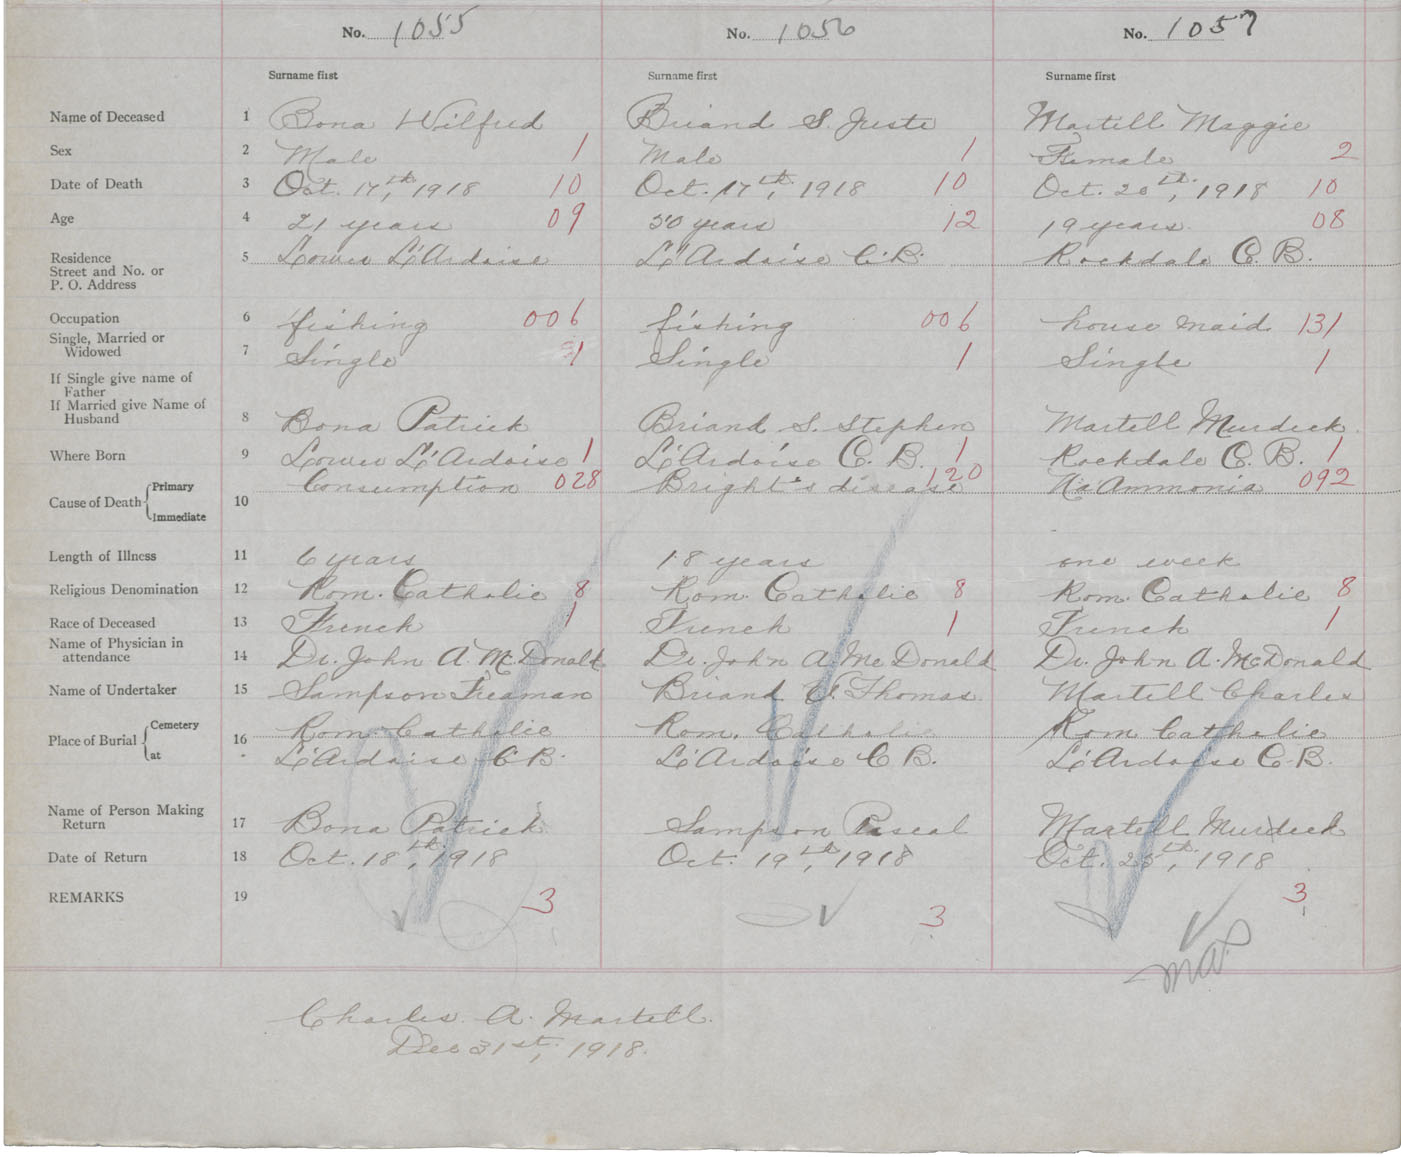 No. 1055 No. 1056 No. 1057
Surname first Surname first Surname first
Name of Deceased 1 Bona Wilfred Briand S. Juste Martell Maggie
Sex 2 Male 1 Male 1 Female 2
Date of Death 3 Oct. 17th, 1918 10 Oct. 17th, 1918 10 Oct. 20th, 1918 10
Age 4 21 years 09 50 years 12 19 years 08
Residence 5 Lower L'Ardoise L'Ardoise C.B. Rockdale C.B.
Street and No. or
P. O. Address
Occupation 6 fishing 006 fishing 006 house maid 131
Single, Married or
Widowed 7 Single 1 Single 1 Single 1
If Single give name of
Father
If Married give Name of
Husband 8 Bona Patrick Briand S. Stephen Martell Murdock
Where Born 9 Lower L'Ardoise 1 L'Ardoise C. B. 1 Rockdale C. B. 1
Primary Consumption 028 Bright's disease 120 Ammonia 092
Cause of Death 10
Immediate
Length of Illness 11 6 years 18 years one week
Religious Denomination 12 Rom. Catholic 8 Rom. Catholic 8 Rom. Catholic 8
Race of Deceased 13 French 1 French 1 French 1
Name of Physician in
attendance 14 Dr. John A. McDonald Dr. John A. McDonald Dr. John A. McDonald
Name of Undertaker 15 Sampson Freaman Briand V. Thomas Martell Charles
Cemetery Rom. Catholic Rom. Catholic Rom Catholic
Place of Burial 16
at L'Ardoise C.B. L'Ardoise C B. L'Ardoise C.B.
Name of Person Making
Return 17 Bona Patrick Sampson Pascal Martell Murdock
Date of Return 18 Oct. 18th, 1918 Oct. 19th, 1918 Oct. 25th, 1918
REMARKS 19 3 3 3
Charles A. Martell.
Dec 31st, 1918.